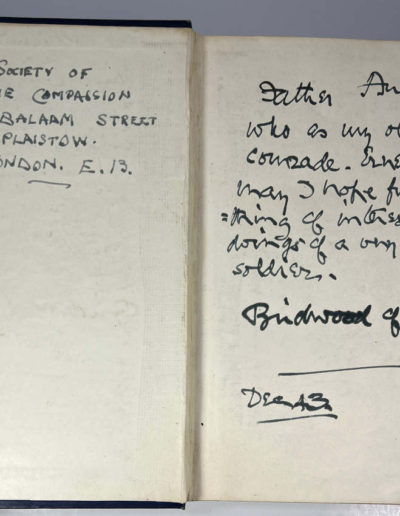 Society of
e Compassion
Balaam Street
Plaistow.
ondon. E. 13.
Father An
who as my ol
comrade. Erne
may I hope fi
=thing of interes
doings of a very
soldier.
Birdwood of
Dec 43